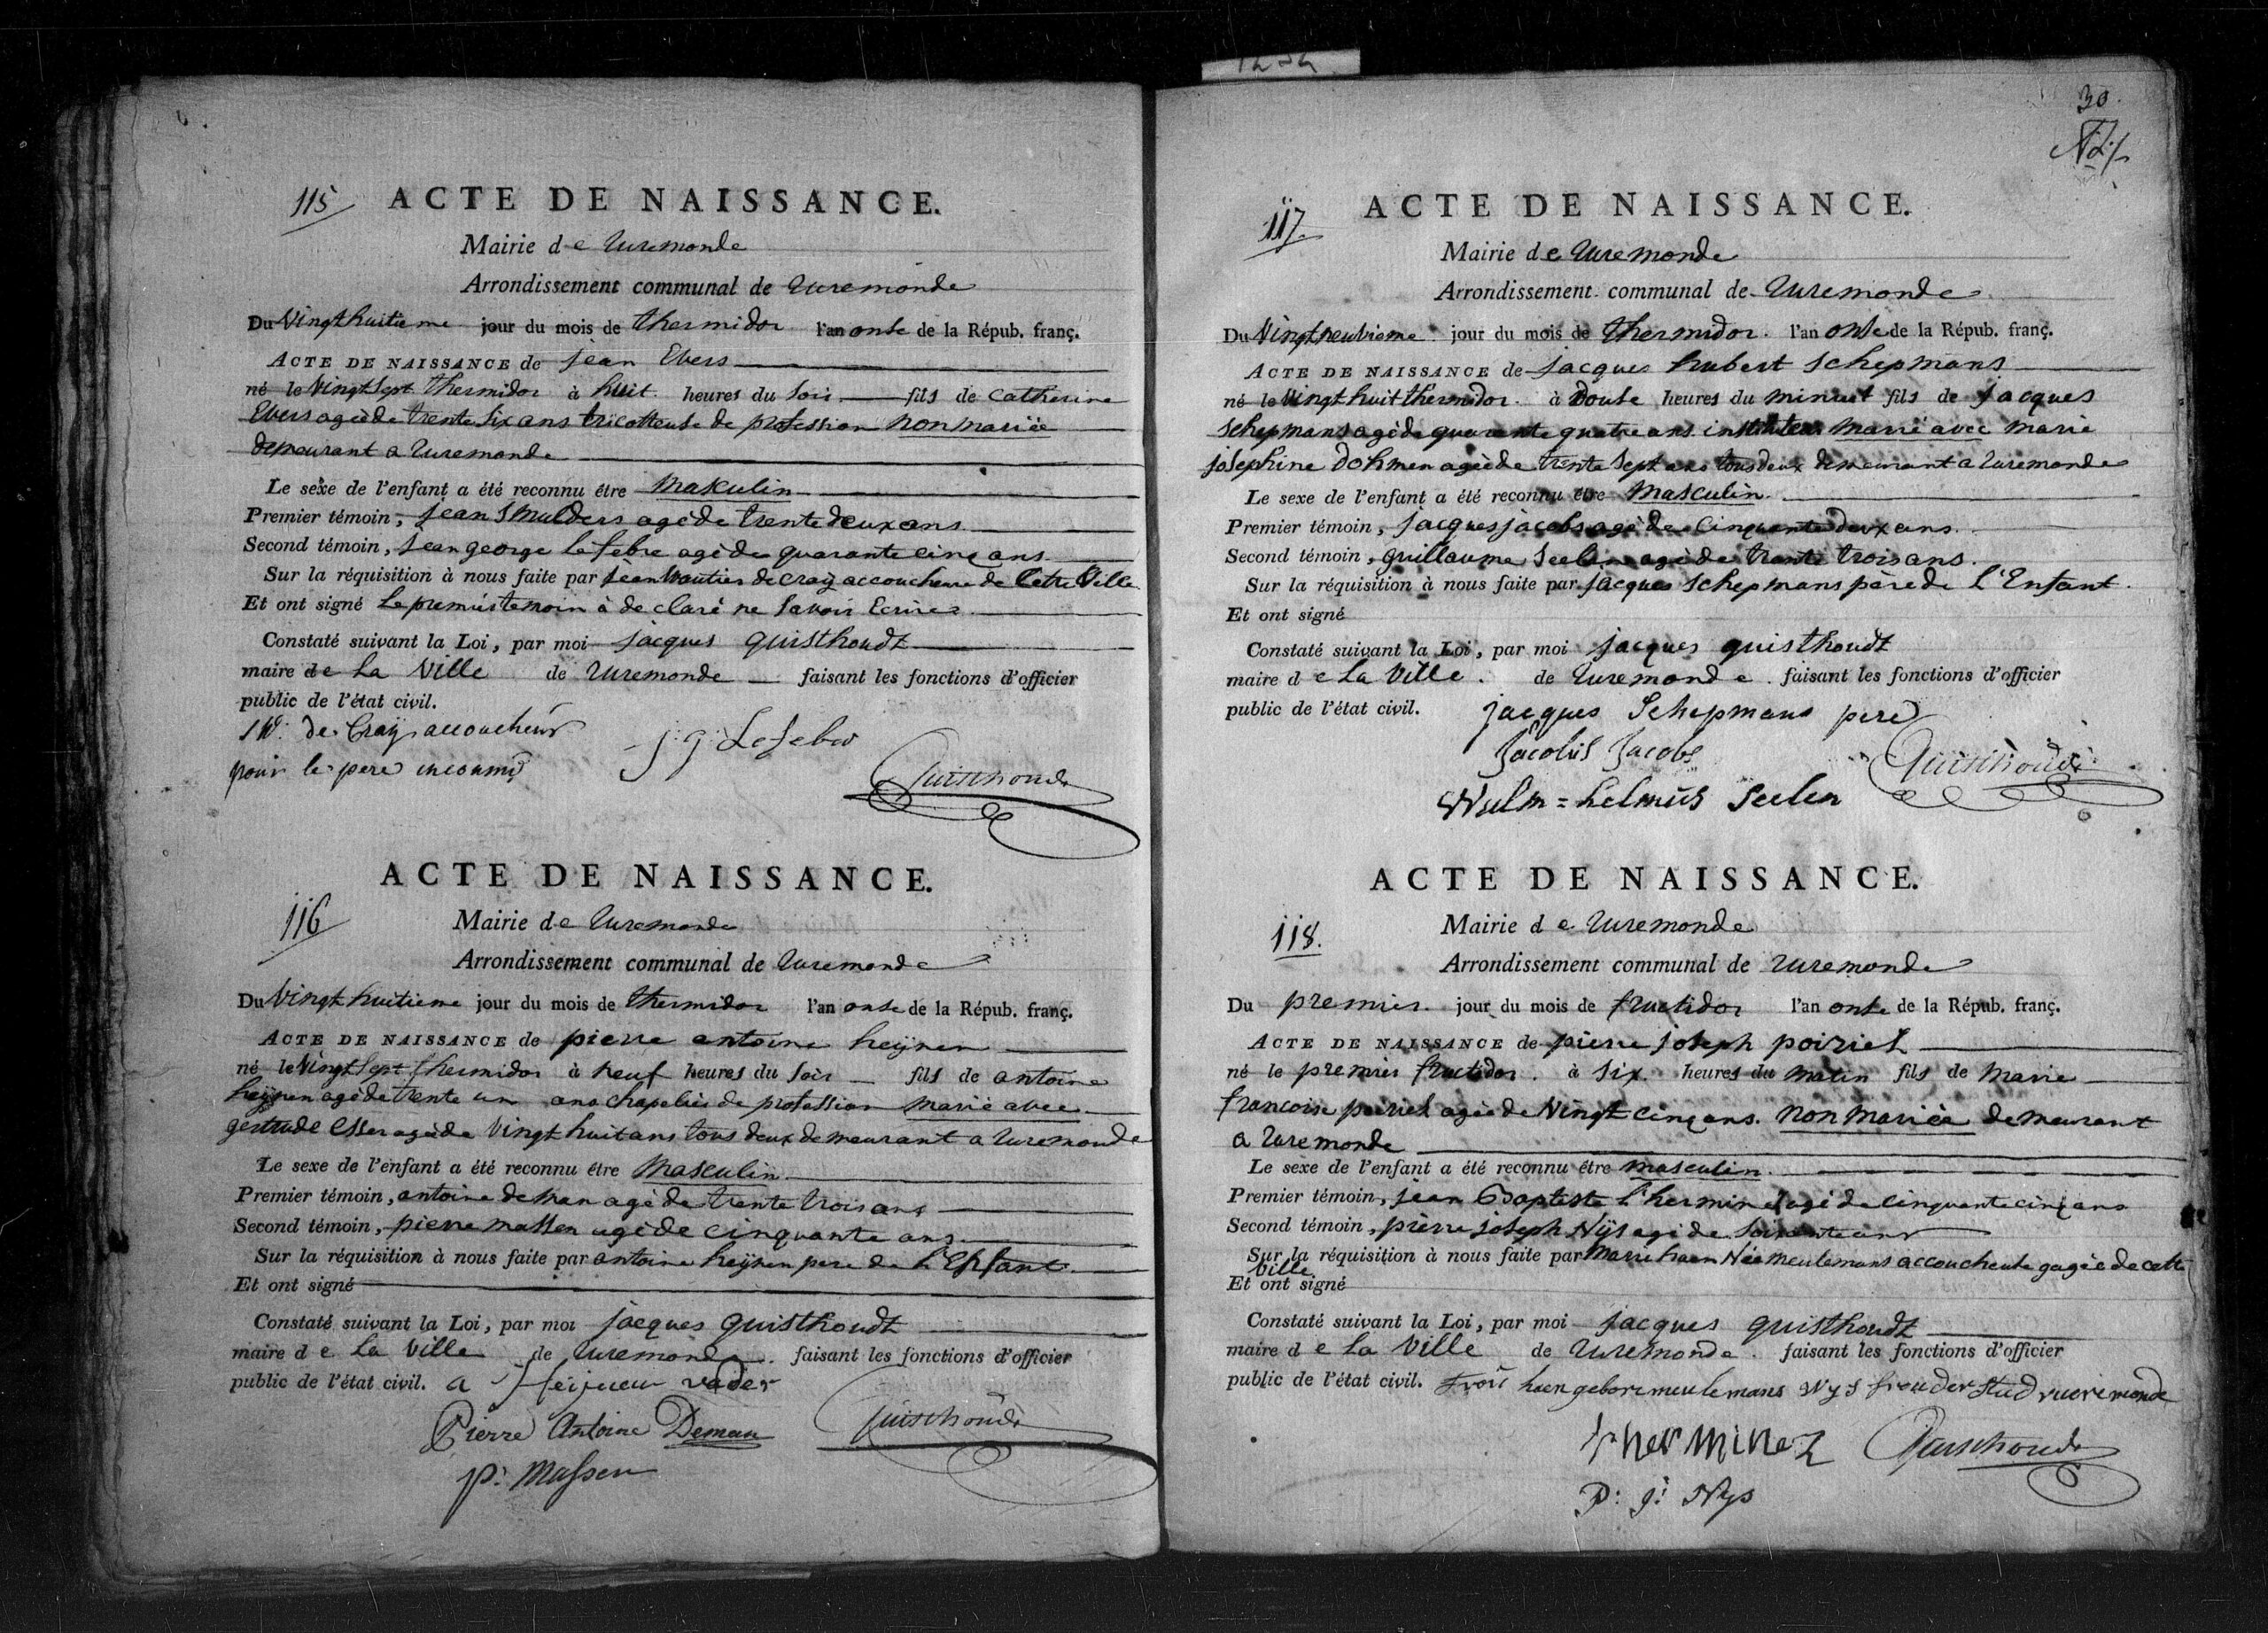 115 ACTE DE NAISSANCE.
Mairie de Ruremonde
Arrondissement communal de Ruremonde
Du Vingthuitieme jour du mois de thermidor l'an onse de la Répub. franç.
ACTE DE NAISSANCE de jean Evers
né le Vingtsept thermidor à huit heures du soir fils de catherine
Evers agéede trente six ans tricotteuse de profession non mariée
demeurant a Ruremonde
Le sexe de l'enfant a été reconnu être Masculin
Premier témoin, jean Smulders agéde trentedeuxans
Second témoin, jean george lefebre agéde quarantecinq ans
Sur la réquisition à nous faite par jean Woutier de craÿ accoucheur de Cette Ville
Et ont signé Le premiertemoin à declaré ne savoir Ecrire
Constaté suivant la Loi, par moi jacques quisthoudt
maire de La Ville de Ruremonde faisant les fonctions d'officier
public de l'état civil.
J W: de Craÿ accoucheur
pour le pere inconnu
j: g: Lefeber
Quisthoudt
ACTE DE NAISSANCE.
116
Mairie de Ruremonde
Arrondissement communal de Ruremonde
Du Vingt huitieme jour du mois de thermidor l'an onse de la Répub. franç.
ACTE DE NAISSANCE de pierre antoine heÿnen
né le Vingtsept thermidor à neuf heures du soir fils de antoine
heÿnen agéde trente un ans chapelier de profession marié avec
gertrude Esser agéede Vingt huit ans tous deux demeurant a Ruremonde
Le sexe de l'enfant a été reconnu être Masculin
Premier témoin, antoine deman agéde trente troisans
Second témoin, pierre massen agéde cinquante ans
Sur la réquisition à nous faite par antoine heÿnen pere de L'Enfant
Et ont signé
Constaté suivant la Loi, par moi jacques quisthoudt
maire de La Ville de Ruremonde faisant les fonctions d'officier
public de l'état civil. a Heijnen vader
Pierre Antoine Deman
Quisthoudt
p: Massen
30.
117. ACTE DE NAISSANCE.
Mairie de Ruremonde
Arrondissement communal de Ruremonde
Du Vingtneuvieme jour du mois de thermidor l'an onse de la Répub. franç.
ACTE DE NAISSANCE de jacques hubert schepmans
né le Vingt huit thermidor à Douse heures du minuit fils de jacques
schepmans agéde quarantequatre ans instituteur marié avec marie
josephine Dohmen agéede trente sept ans tousdeux demeurant a Ruremonde
Le sexe de l'enfant a été reconnu être Masculin
Premier témoin, jacques jacobs agéde cinquante deux ans
Second témoin, guillaume Seelen agéde trente trois ans.
Sur la réquisition à nous faite par jacques schepmans pèrede l'Enfant.
Et ont signé
Constaté suivant la Loi, par moi jacques quisthoudt
maire de La Ville de Ruremonde faisant les fonctions d'officier
public de l'état civil. jacques Schepmans pere
Jacobus Jacobs
Quisthoudt
Wulm=helmus Seelen
ACTE DE NAISSANCE.
118.
Mairie de Ruremonde
Arrondissement communal de Ruremonde
Du premier jour du mois de fructidor l'an onse de la Répub. franç.
ACTE DE NAISSANCE de pierre joseph poiriet
né le premier fructidor à six heures du matin fils de marie
francoise poiriet agéede Vingt cinq ans. non mariée demeurant
a Ruremonde
Le sexe de l'enfant a été reconnu être masculin
Premier témoin, jean Baptiste l'herminez agé de cinquantecinq ans
Second témoin, pierre joseph Nÿs agé de soixante ans
Sur la réquisition à nous faite par Marie haen Née meulemans accoucheuse gagée de cette
Ville
Et ont signé
Constaté suivant la Loi, par moi jacques quisthoudt
maire de La Ville de Ruremonde faisant les fonctions d'officier
public de l'état civil. haen gebore meulemans wys frou der stad rueremonde
lherminez Quisthoudt
P: j: Nys